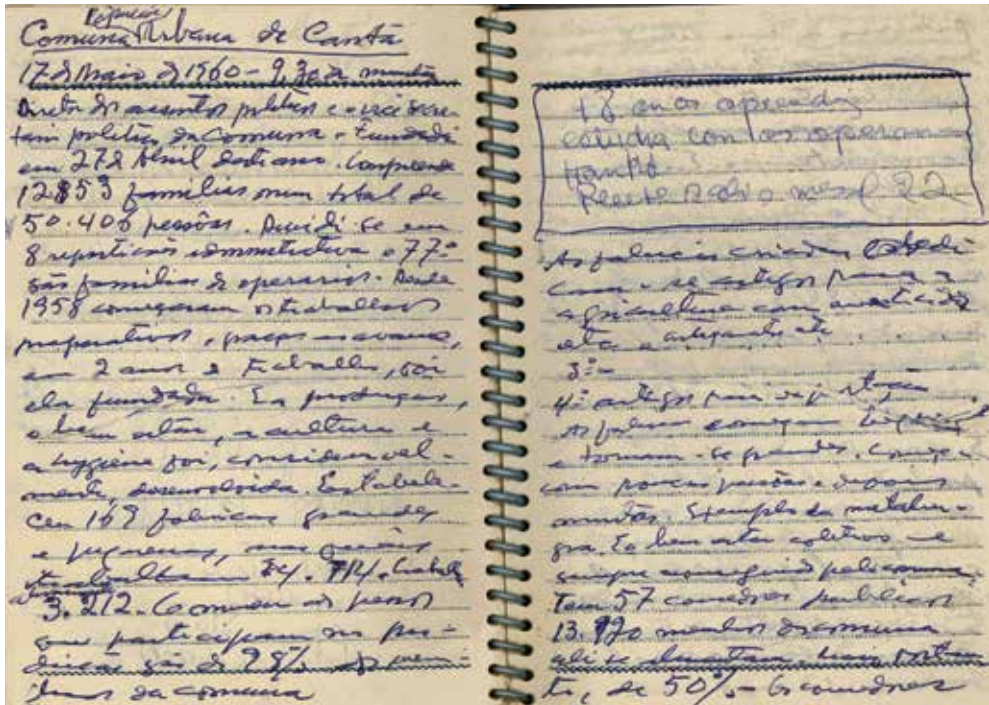 Popular
Comuna Urbana de Cantã
17 d Maio d 1960 - 9,30 da manhã
Diretor dos assuntos politicos e secre
tario politico da Comuna - Fundada
em 27 d Abril deste ano. Compreende
12853 familias num total de
50.406 pessôas. Dividi-se em
8 repartições administrativa e 77%
são familias de operarios - Desde
1958 começaram os trabalhos
preparativos, graças
em 2 anos d trabalho, foi
ela fundada. Eª produção,
o bem estar, a cultura e
a hygiene foi, consideravel-
mente, desenvolvida. Estabele-
ceu 169 fabricas grandes
e pequenas, nas quais
trabalham
3.212. Comuna as pessoas
que participam na pro-
dução são de 98% dos mem-
bros da comuna
18 anos aprendiz
estuda com os operarios
Recebe mensal 22
As fabricas criadas dedi
cam-se artigos para a
agricultura com
etc e artezanato etc
3º-
4º artigos para exportação
As fabricas começam
e tornam-se grandes. Começa
com poucas pessôas e depois
muitas. Exemplo da metalur-
gia. Eo bem estar coletivo é
sempre conseguido pela comuna.
Tem 57 comedores publicos
13. membros da comuna
ali se alimentam, mais portan
to, de 50% - Os comedores